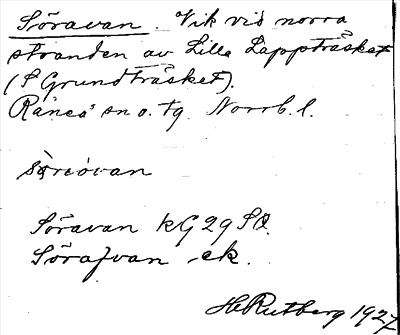 Söravan. Vik vid norra
stranden av Lilla Lappträsket
(S Grundträsket).
Råneå sn o. tg. Norrb. l.
Söravan kG29SO
Söra/van ek.
H Rutberg 1927